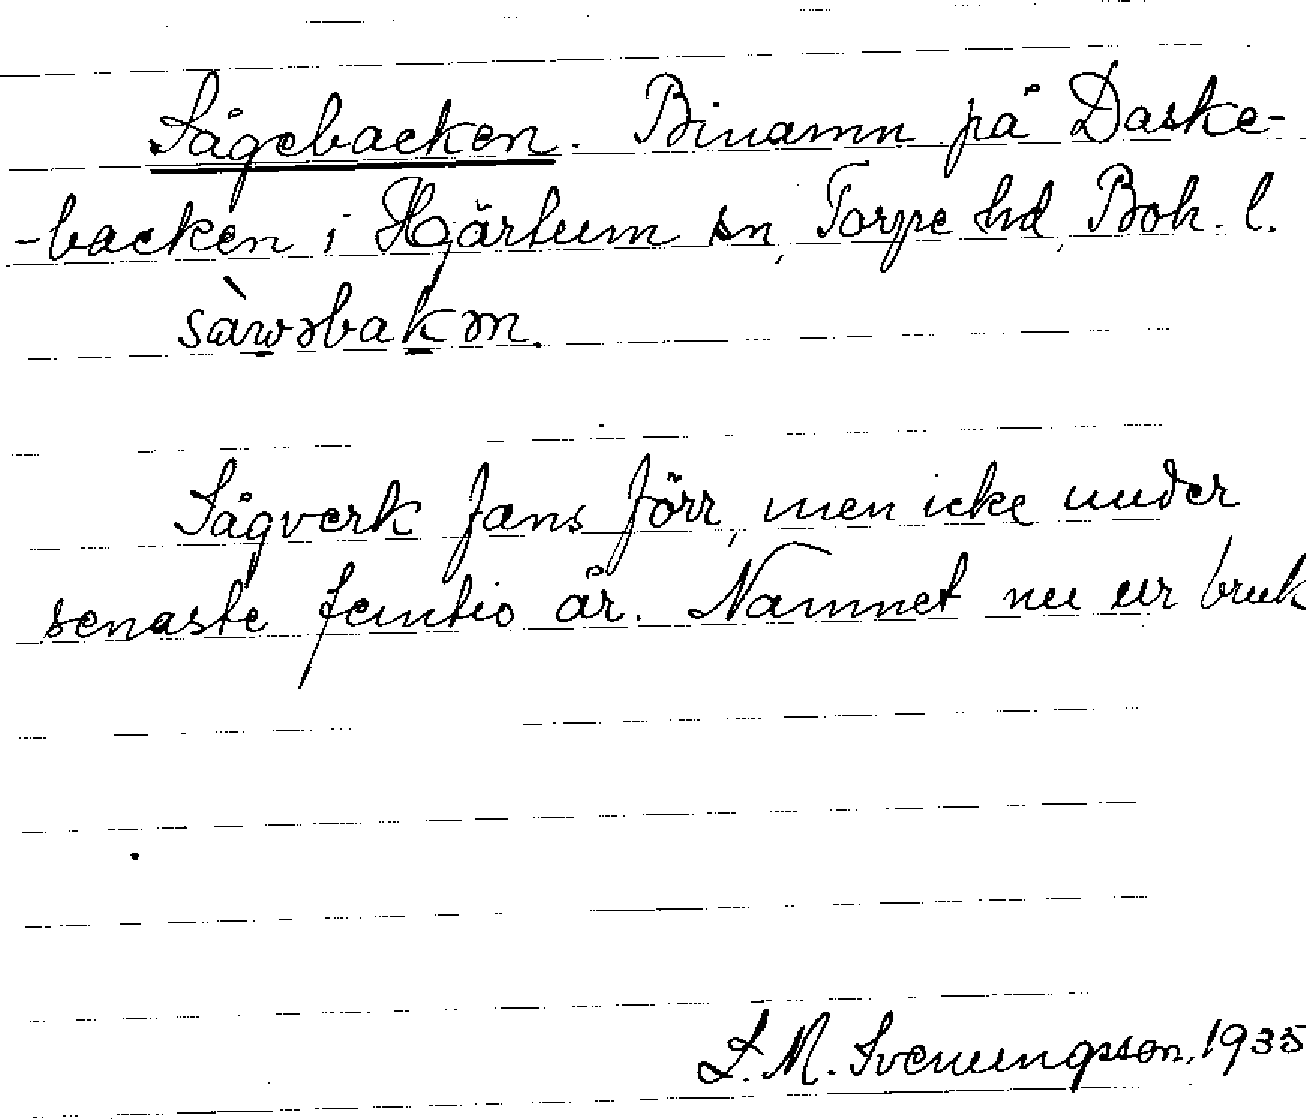 Sågebacken. Binamn på Daske-
-backen i Hjärtum sn, Torpe hd, Boh. l.
sàwəbakən.
Sågverk fans förr, men icke under
senaste femtio år. Namnet nu ur bruk
S. M. Svenungsson, 1935